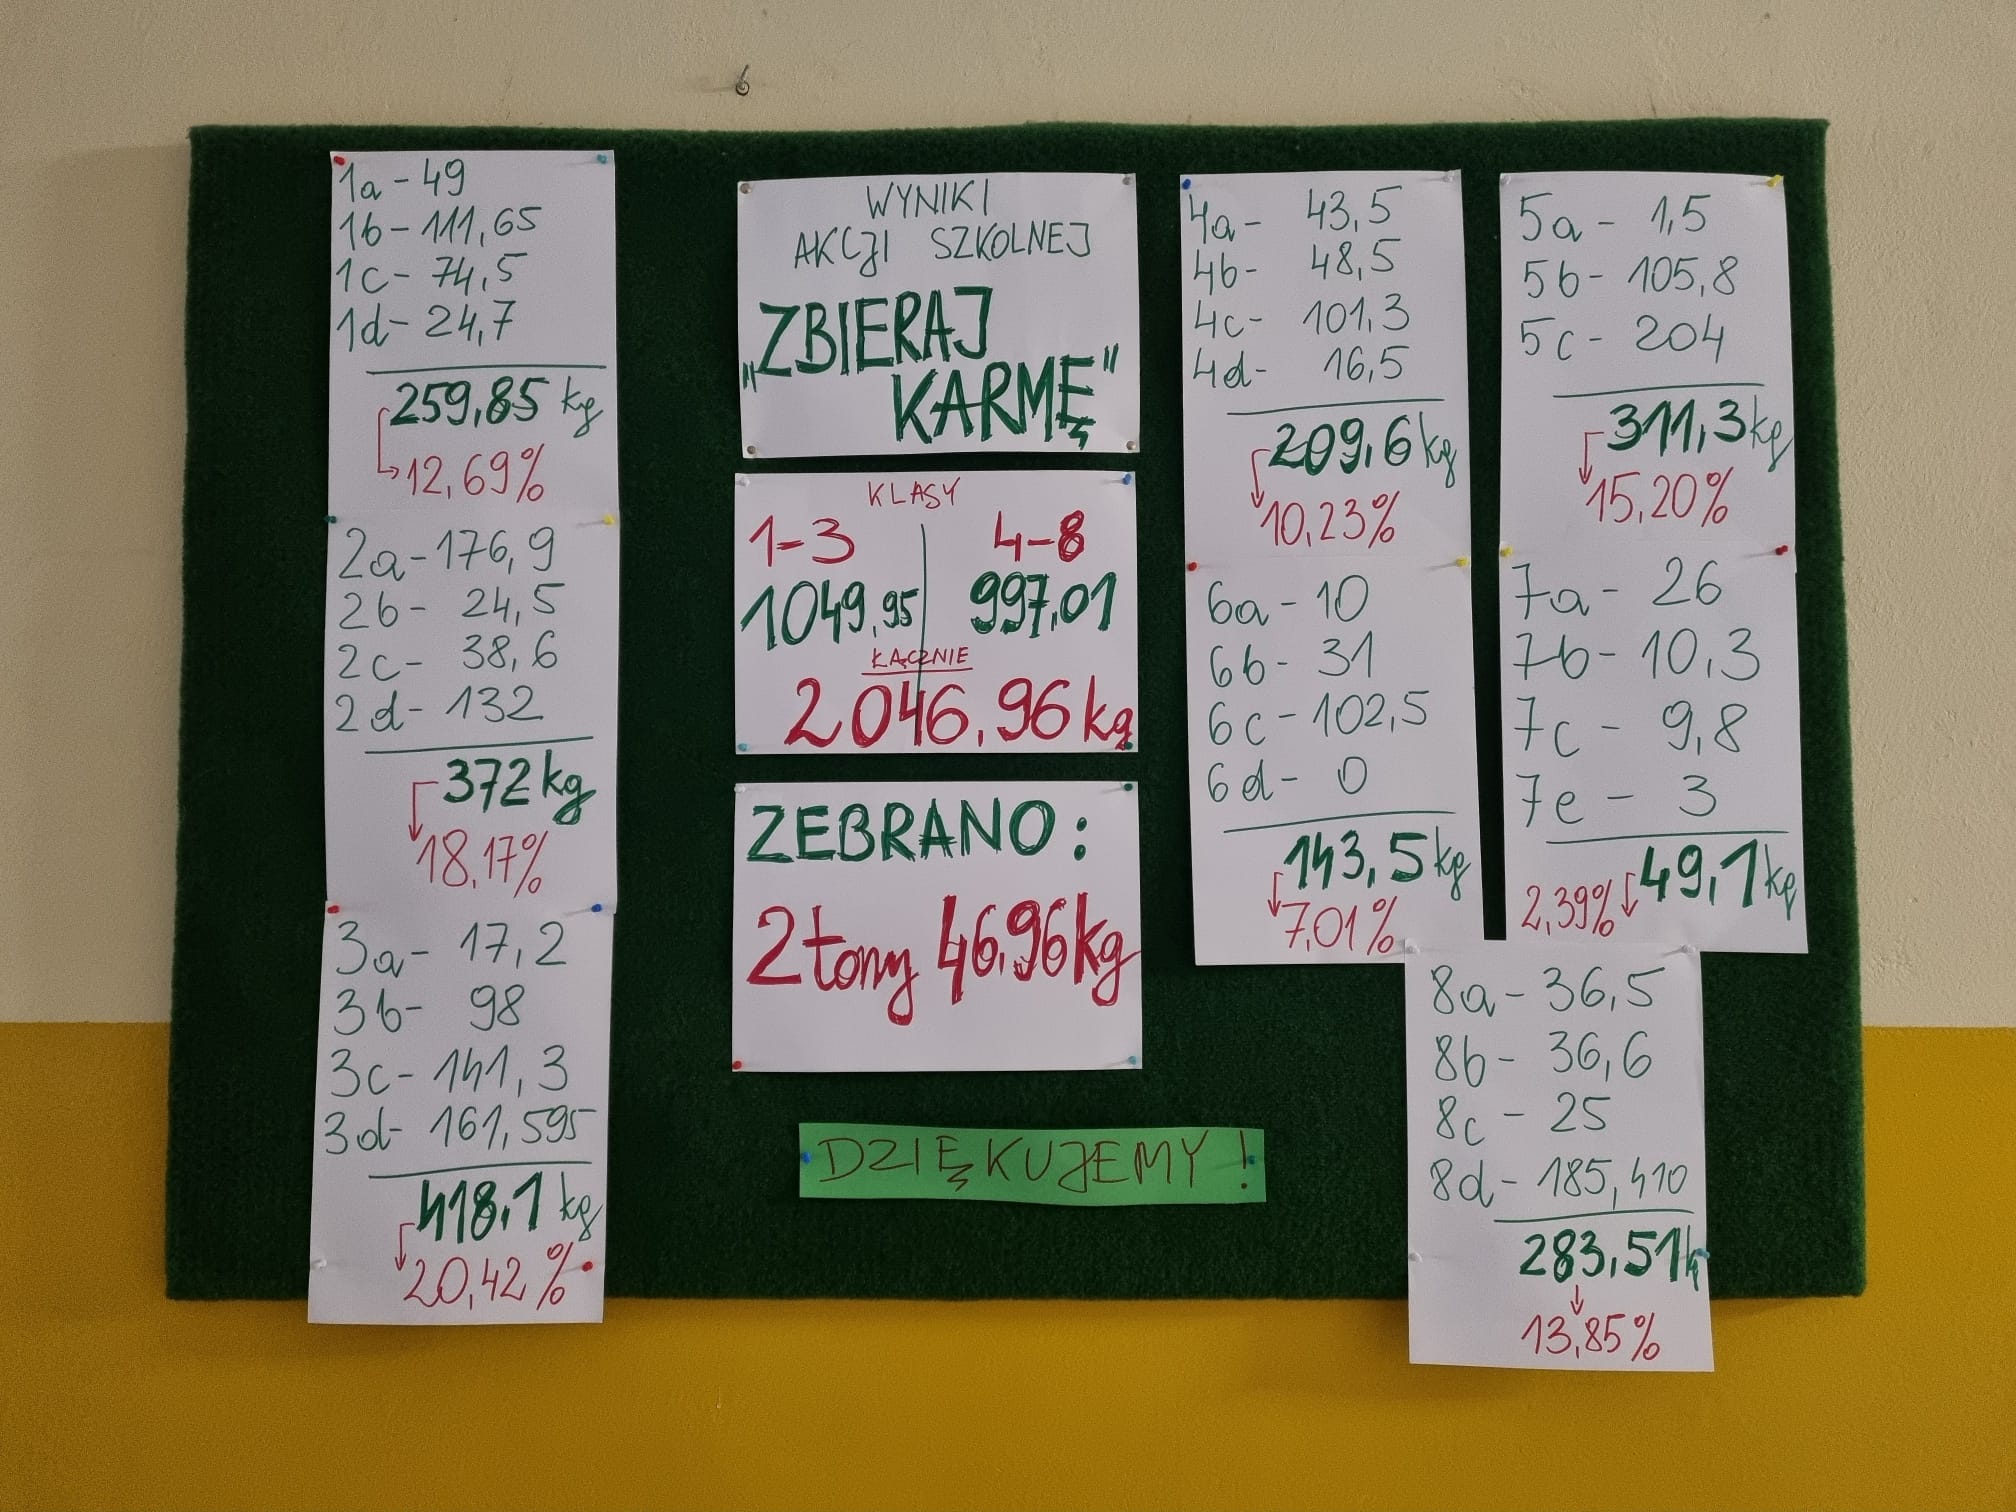 1a - 49
1b - 111,65
1c - 74,5
1d - 24,7
259,85 kg
12,69%
2a - 176,9
2b - 24,5
2c - 38,6
2d - 132
372 kg
18,17%
3a - 17,2
3b - 98
3c - 141,3
3d - 161,595
418,1 kg
20,42%
WYNIKI
AKCJI SZKOLNEJ
„ZBIERAJ
KARMĘ"
KLASY
1-3 4-8
1049,95 997,01
ŁĄCZNIE
2046,96 kg
ZEBRANO:
2 tony 46,96 kg
DZIĘKUJEMY!
4a - 43,5
4b - 48,5
4c - 101,3
4d - 16,5
209,6 kg
10,23%
6a - 10
6b - 31
6c - 102,5
6d - 0
143,5 kg
7,01%
5a - 1,5
5b - 105,8
5c - 204
311,3 kg
15,20%
7a - 26
7b - 10,3
7c - 9,8
7e - 3
49,1 kg
2,39%
8a - 36,5
8b - 36,6
8c - 25
8d - 185,410
283,51 k
13,85%